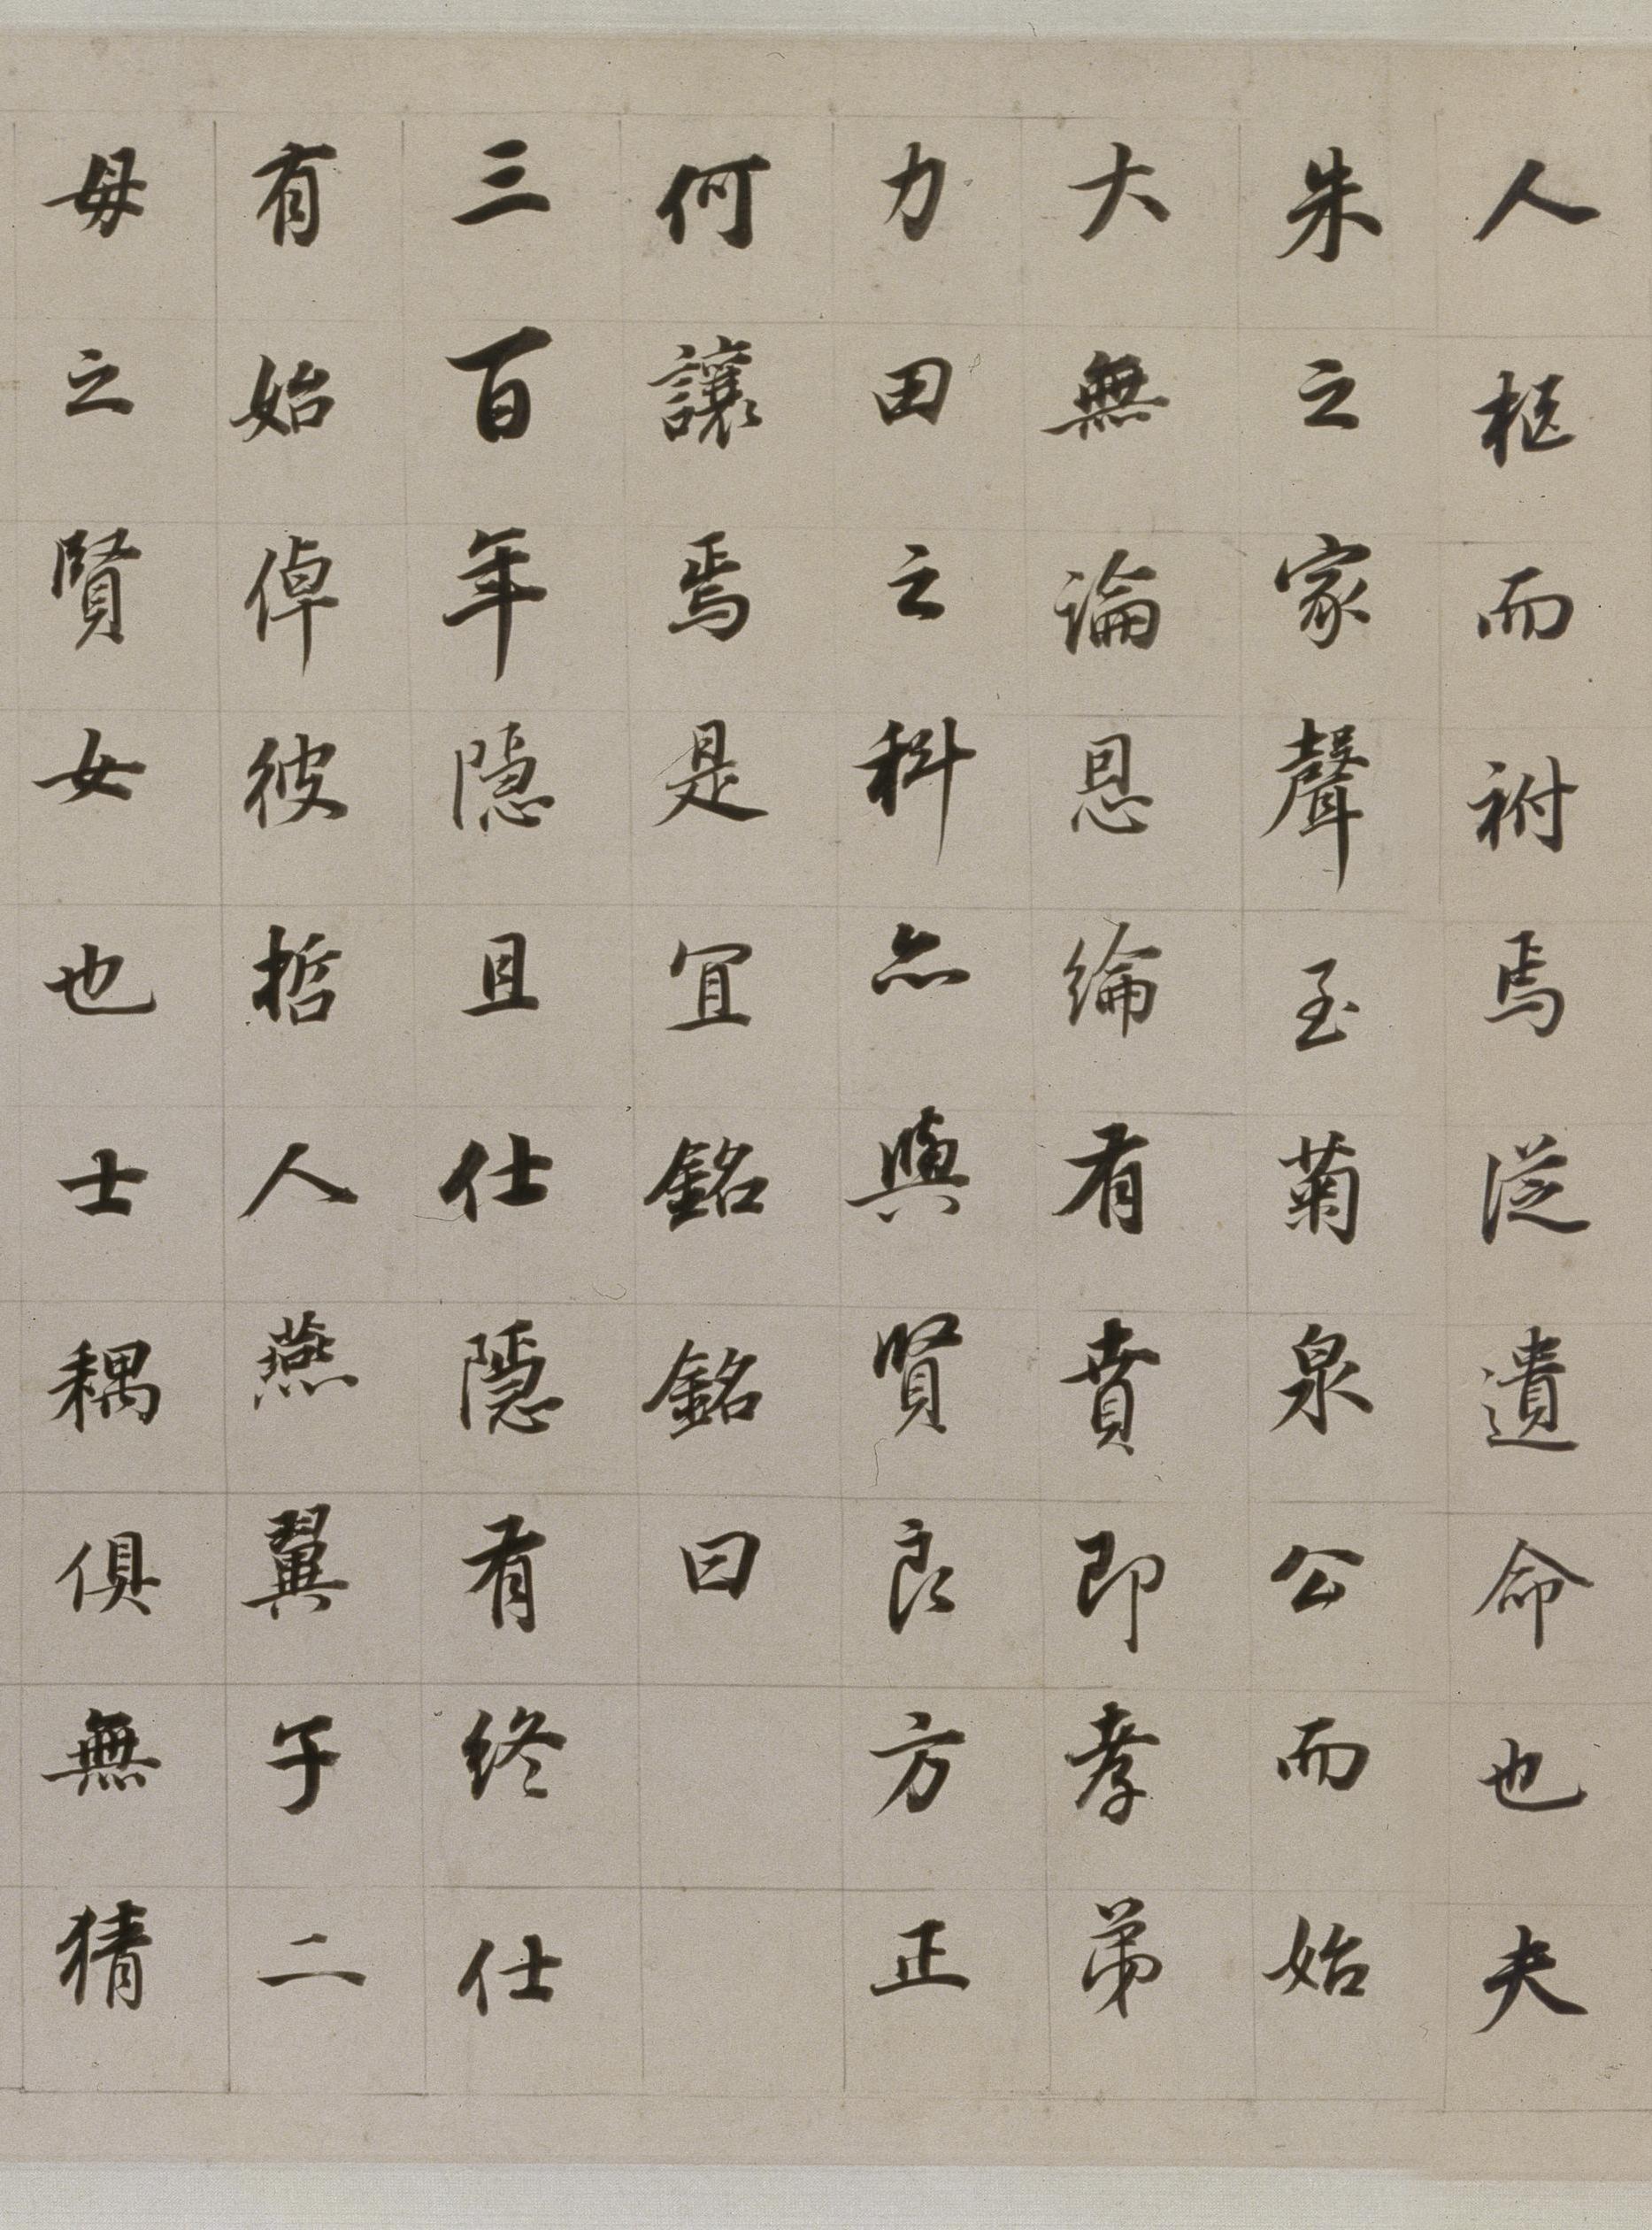 人柩而祔焉從遺命也夫
朱之家聲至菊泉公而始
大無論恩綸有賁即孝弟
力田之科亦與賢良方正
何讓焉是宜銘銘曰
三百年隱且仕隱有終仕
有始倬彼哲人燕翼子二
母之賢女也士耦俱無猜